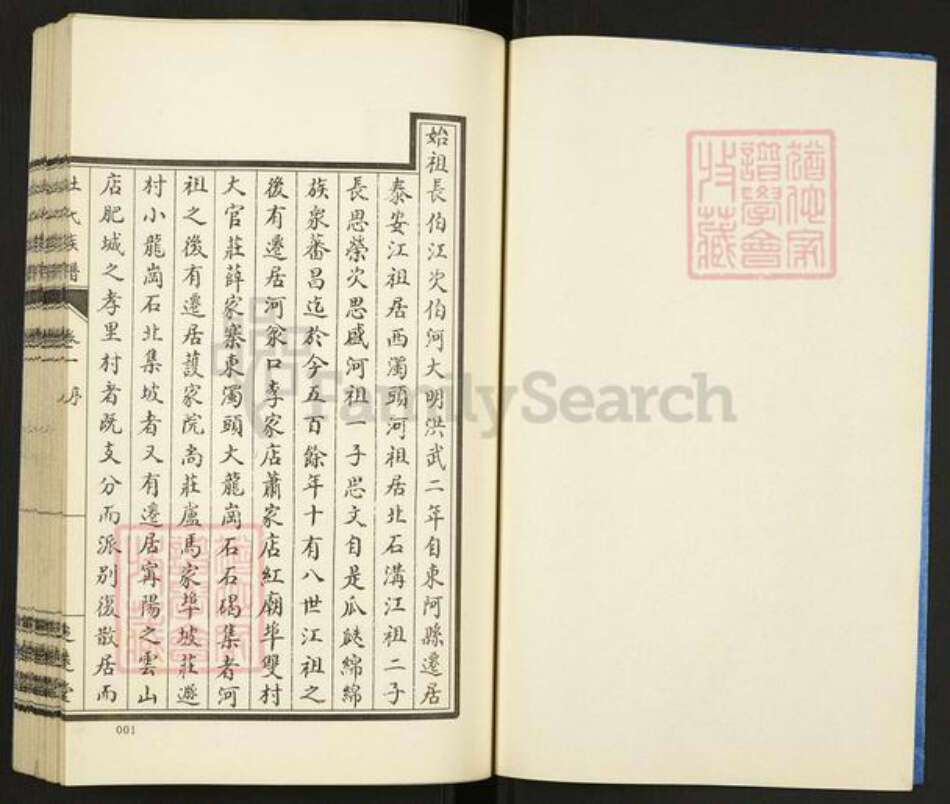 始祖長伯江次伯河大明洪武二年自東阿縣遷居
泰安江祖居西濁頭河祖居北石溝江祖二子
長思榮次思盛河祖一子思文自是瓜瓞綿綿
族衆蕃昌迄於今五百餘年十有八世江祖之
後有遷居河汆口李家店蕭家店紅廟埠雙村
大官莊薛家寨東濁頭大龍崗石石碣集者河
祖之後有遷居護家院尚莊盧馬家埠坡莊遯
村小龍崗石北集坡者又有遷居甯陽之雲山
店肥城之孝里村者既支分而派別復散居而
杜氏族譜
卷一
序
001
譜學會
收藏
FamilySearch